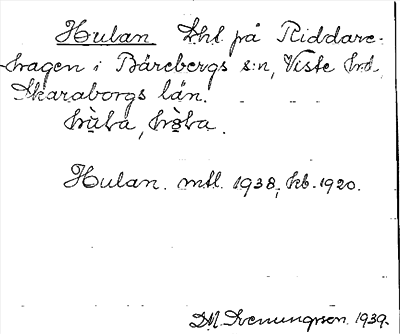 Hulan Lht på Riddare-
hagen i Bärebergs s:n, Viste hd,
Skaraborgs län.
Hulan. mtl. 1938, kb. 1920.
D.M. Svenungson 1939.